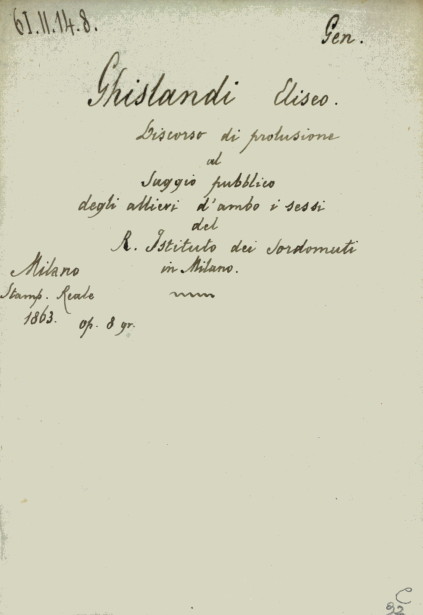 61.II.14.8.
Gen.
Ghislandi Eliseo.
Discorso di prolusione
al
Saggio pubblico
degli allievi d'ambo i sessi
del
R. Istituto dei Sordomuti
in Milano.
Milano
Stamp. Reale
1863. op. 8 gr.
C
92